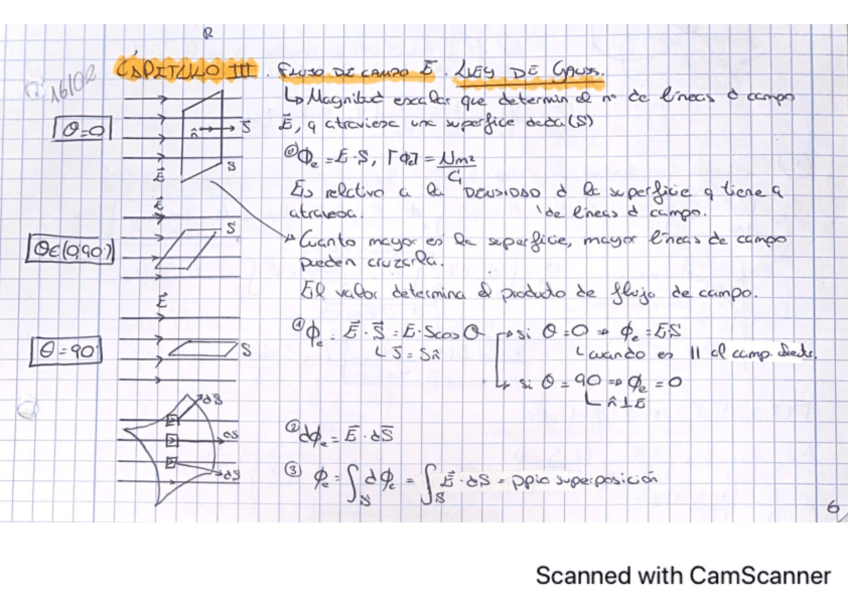 16/02
CAPITULO III. FLUJO DE CAMPO E. LEY DE GAUSS.
↳ Magnitud escalar que determin el nº de líneas d campo
E⃗, q atraviesa una superfice dada (S)
θ=0
n̂ S⃗
S
E⃗
⓪ Φe = E·S, [Φe] = Nm²/C
Es relativo a la DENSIDAD d la superficie q tiene q
atravesa. de líneas d campo.
E⃗
S
θ∈(0,90º)
Cuanto mayor es la superficie, mayor líneas de campo
pueden cruzarla.
El valor determina el producto de flujo de campo.
E⃗
θ=90º
S
① Φe = E⃗·S⃗ = E·S cos θ → si θ=0 ⇒ Φe = ES
↳ S⃗ = S n̂
↳ cuando es || al camp.
↳ si θ = 90 ⇒ Φe = 0
↳ n̂ ⊥ E
dS
dS
dS
② dΦe = E⃗·dS⃗
③ Φe = ∫S dΦe = ∫S E⃗·dS = ppio superposición
6
Scanned with CamScanner